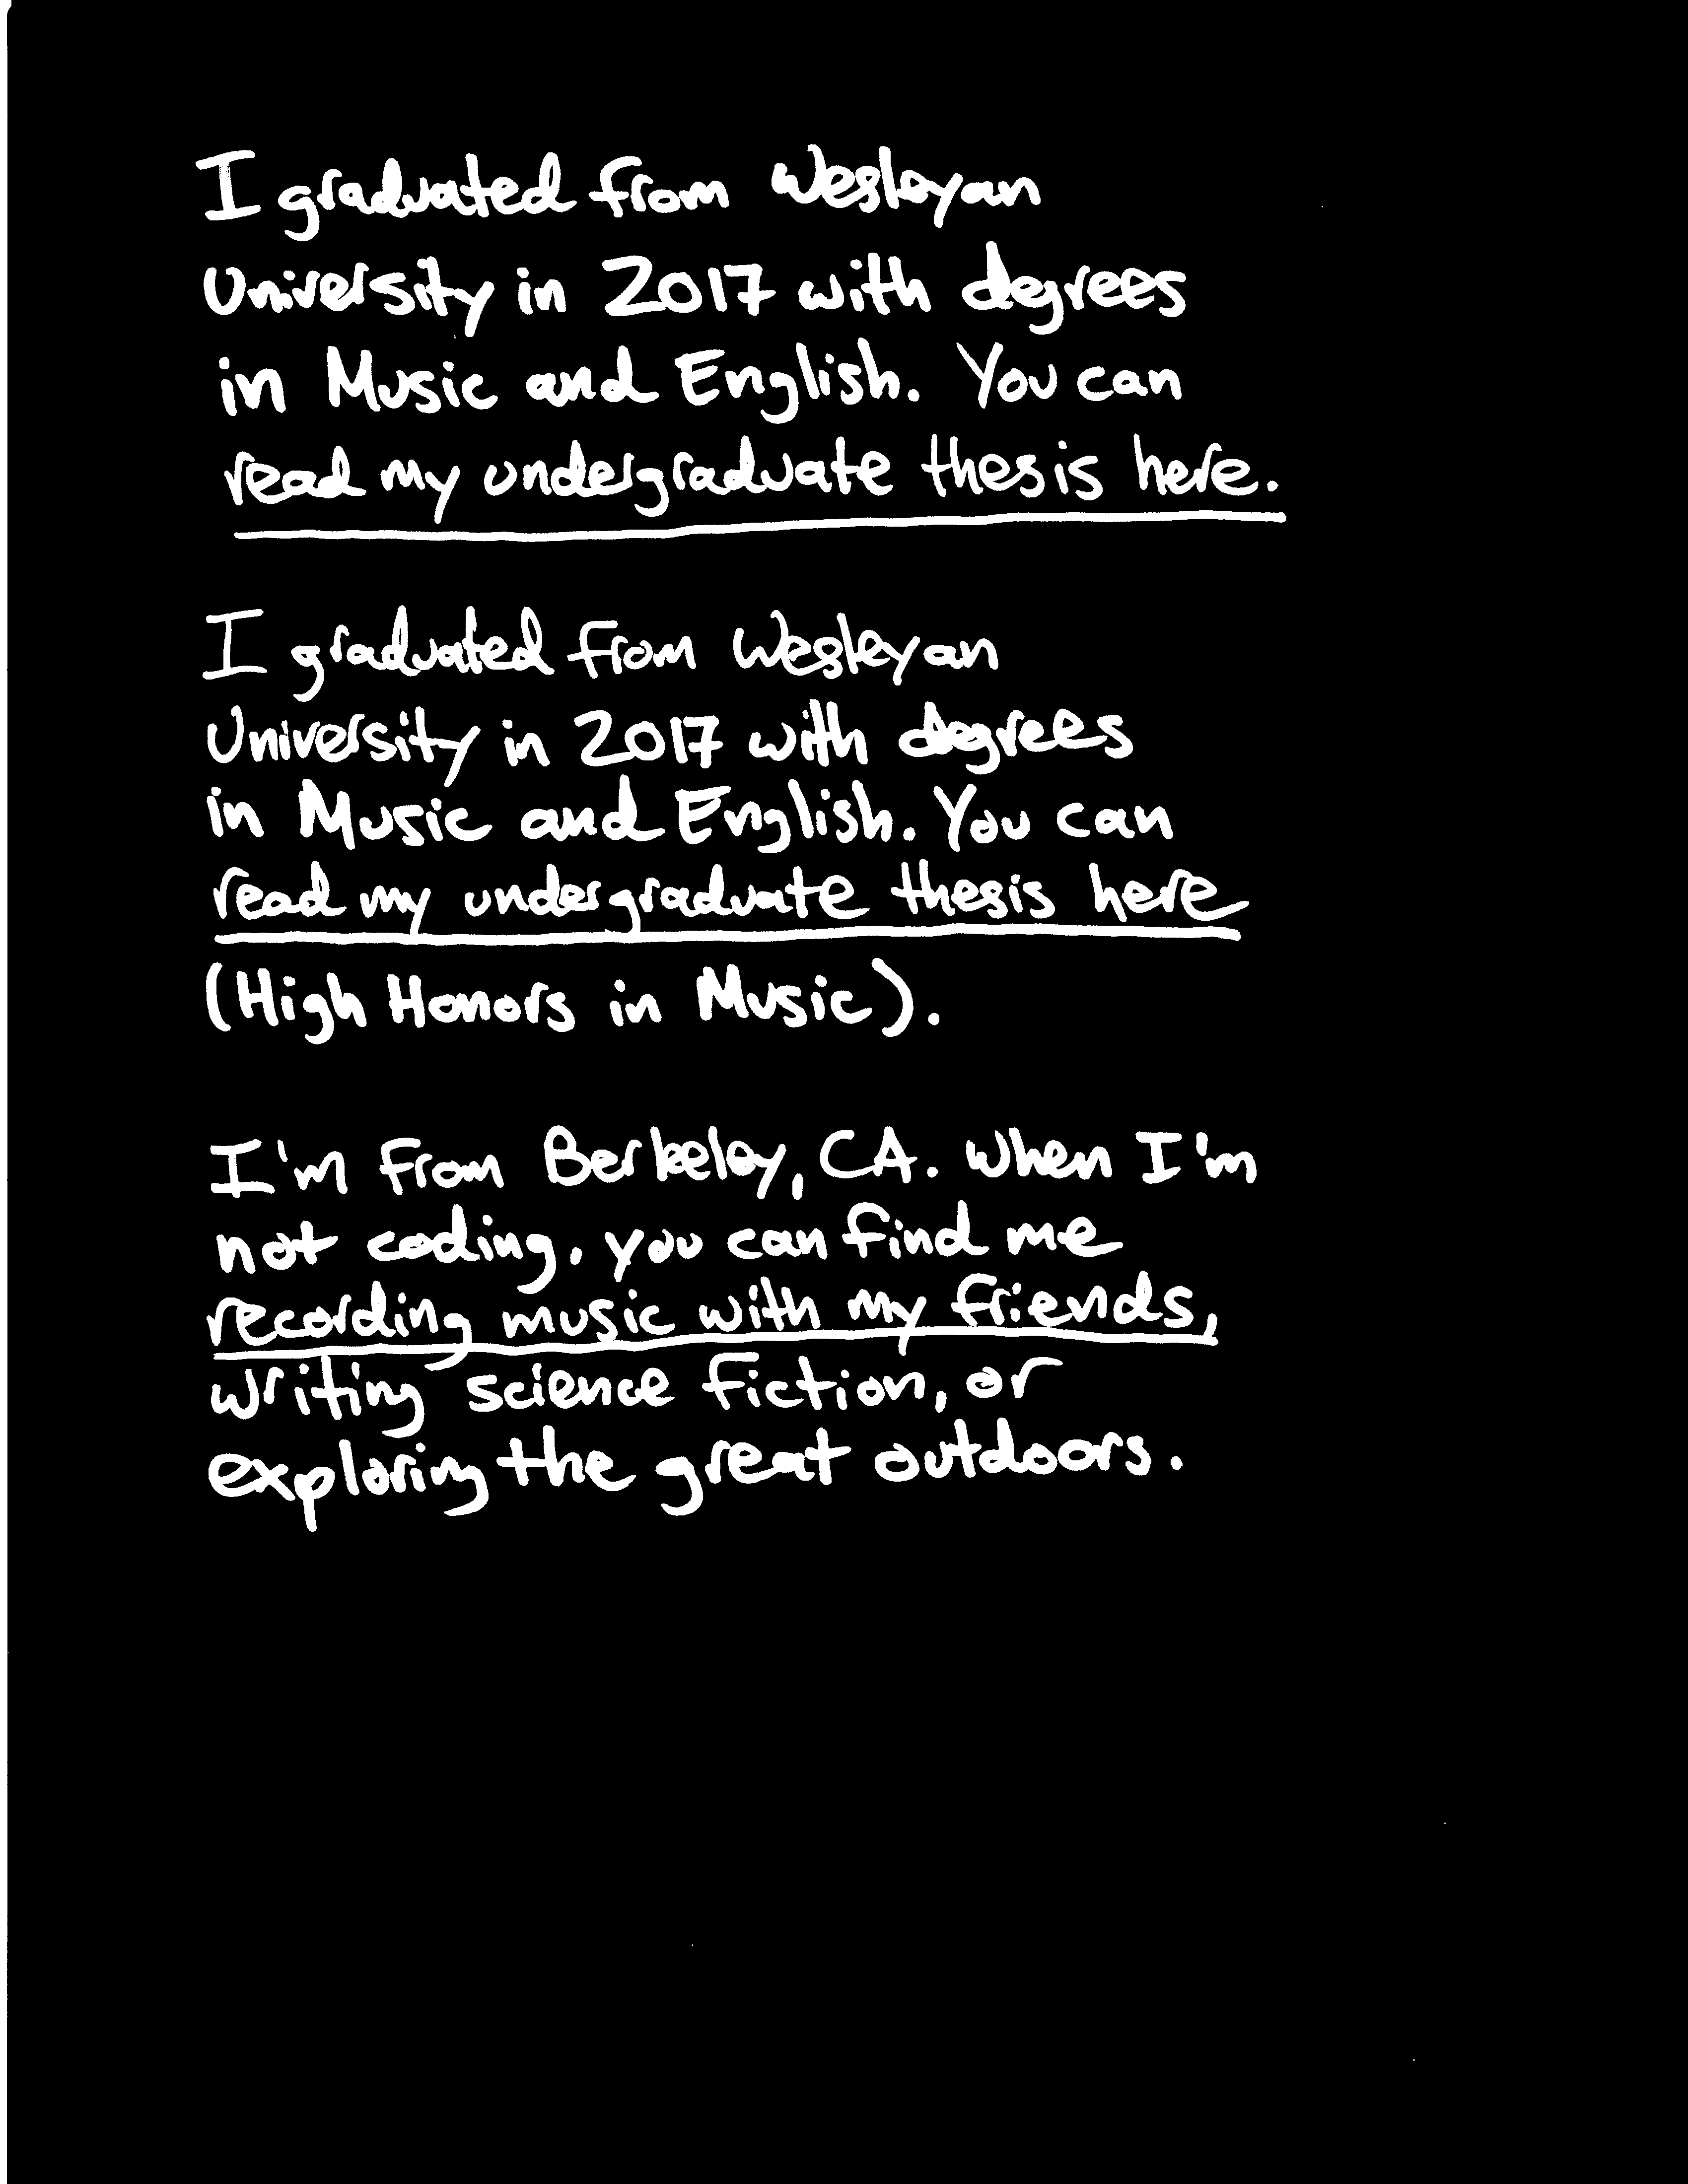 I graduated from Wesleyan
University in 2017 with degrees
in Music and English. You can
read my undergraduate thesis here.
I graduated from Wesleyan
University in 2017 with degrees
in Music and English. You can
read my undergraduate thesis here
(High Honors in Music).
I'm from Berkeley, CA. When I'm
not coding, you can find me
recording music with my friends,
writing science fiction, or
exploring the great outdoors.